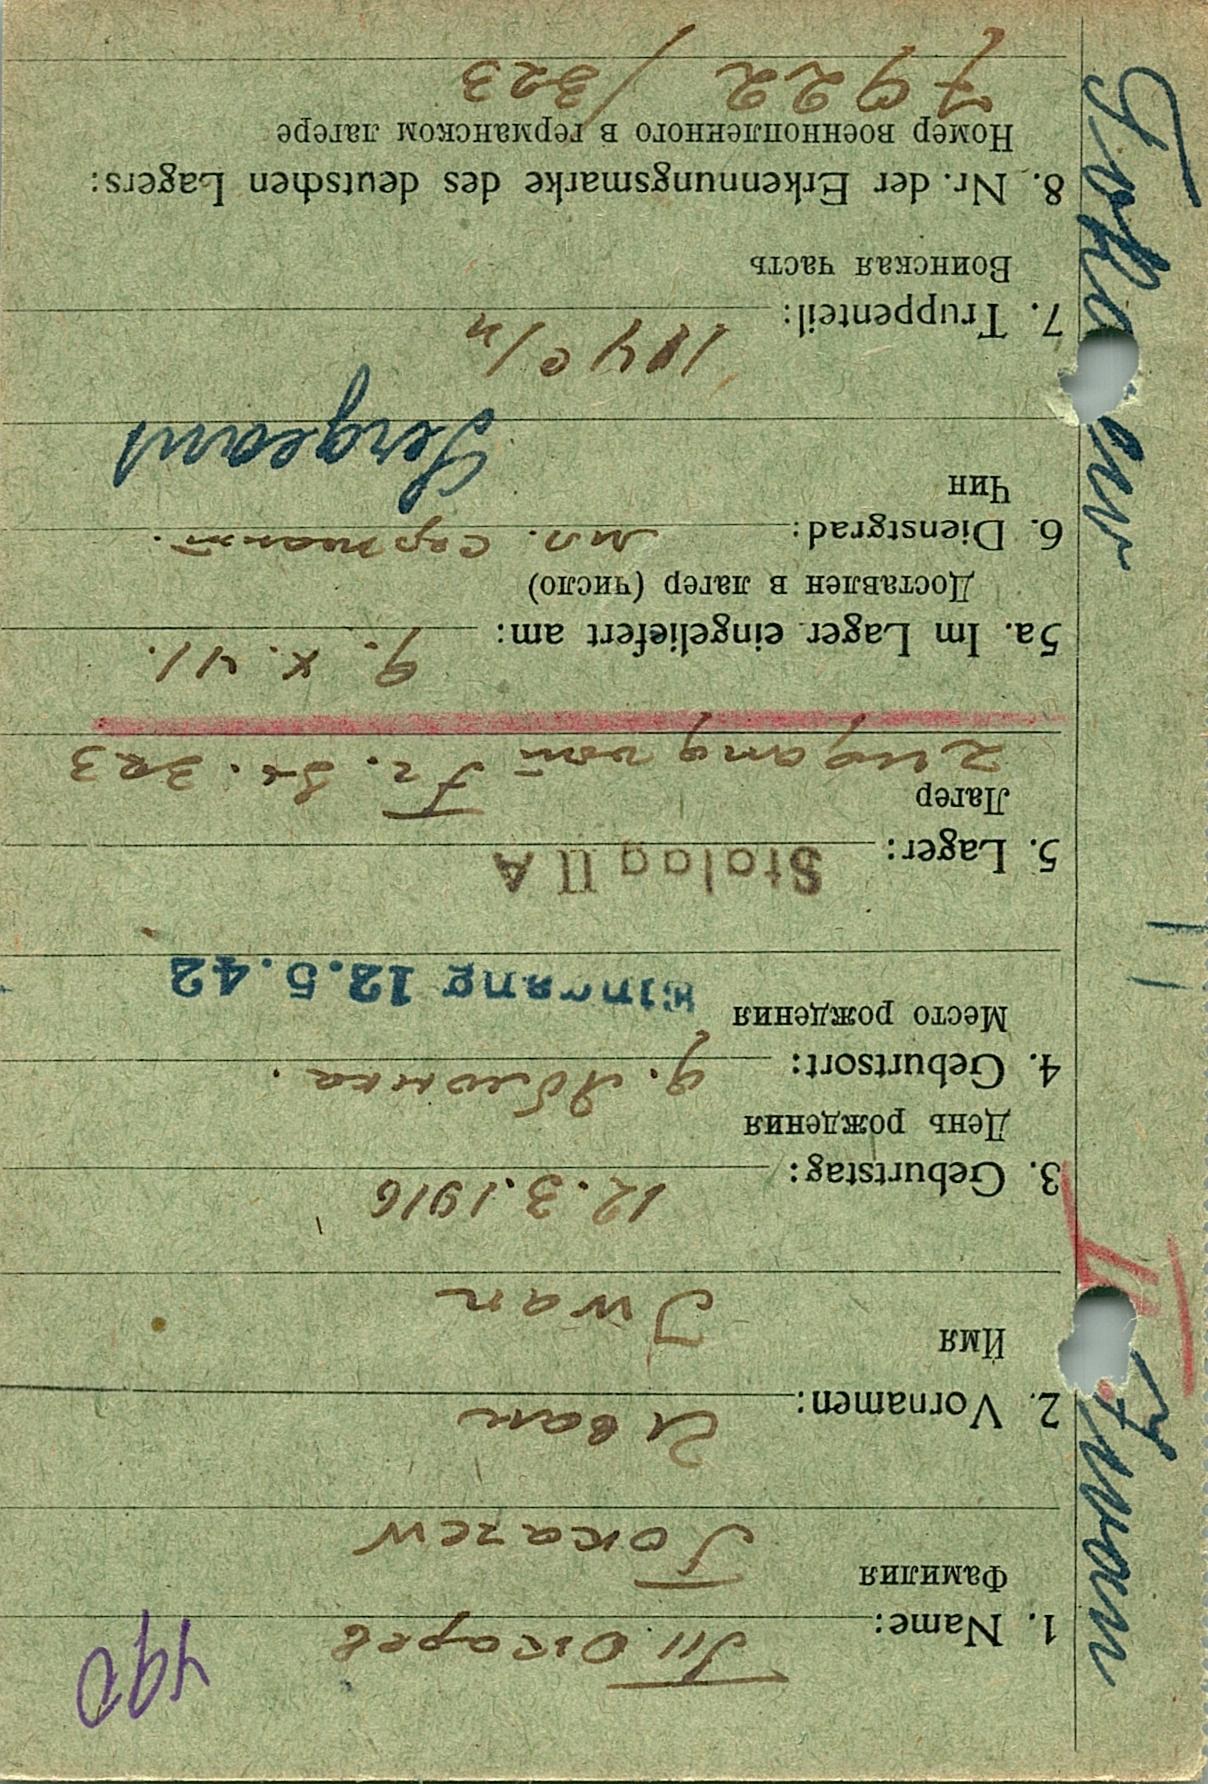 490
1. Name: Токарев
Фамилия
Tokarew
2. Vornamen: Иван
Имя
Iwan
3. Geburtstag: 12.3.1916
День рождения
4. Geburtsort: д. Яблонка.
Место рождения
Eingang 12.5.42
5. Lager: Stalag II A
Лагер
Zugang vom Fr. St. 323
5a. Im Lager eingeliefert am: 9. X. 41.
Доставлен в лагер (число)
6. Dienstgrad: мл. сержант.
Чин
Sergeant
7. Truppenteil: 184 с/п
Воинская часть
8. Nr. der Erkennungsmarke des deutschen Lagers:
Номер военнопленного в германском лагере
7922/323
Iwan
II